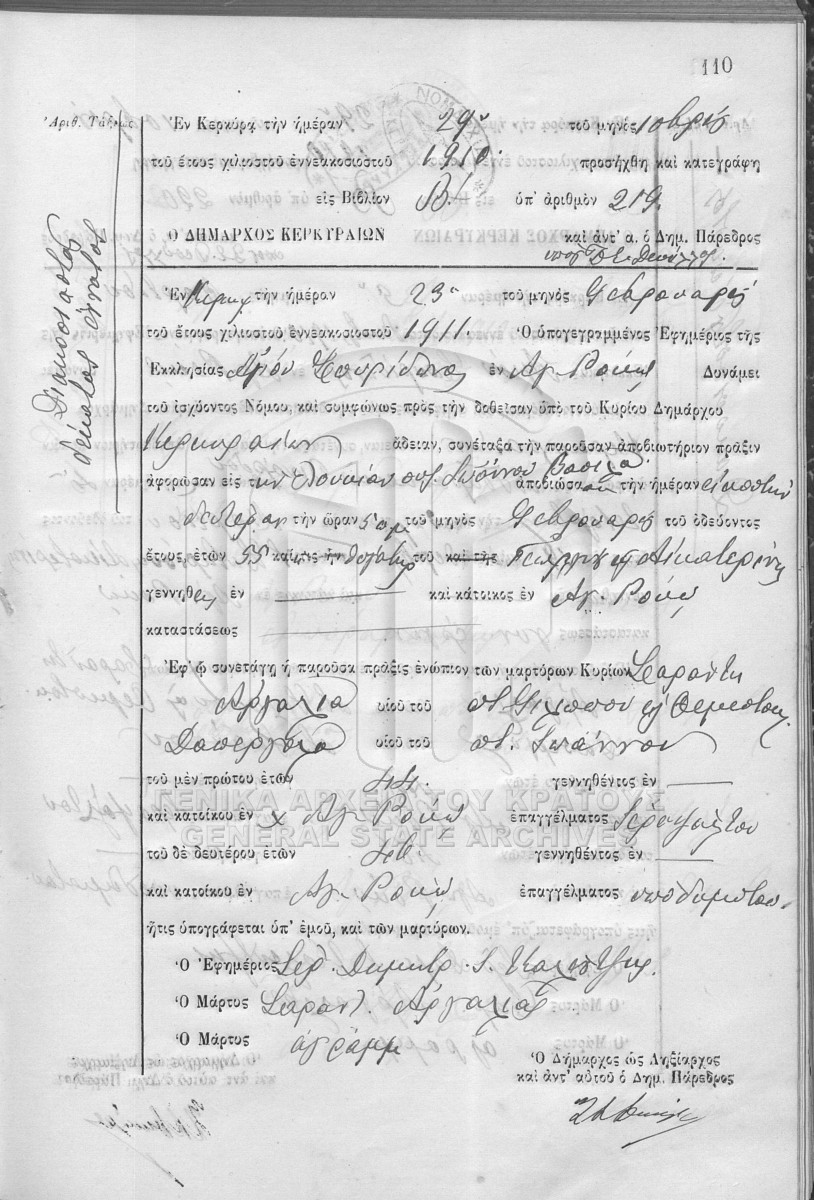 110
Ἀριθ. Τάξεως
Διακοσιοστὸς
δέκατος ἔννατος
Ἐν Κερκύρᾳ τὴν ἡμέραν 29ην τοῦ μηνὸς 10βρίου
τοῦ ἔτους χιλιοστοῦ ἐννεακοσιοστοῦ 1910. προσήχθη καὶ κατεγράφη
εἰς Βιβλίον Β! ὑπ' ἀριθμὸν 219.
Ὁ ΔΗΜΑΡΧΟΣ ΚΕΡΚΥΡΑΙΩΝ καὶ ἀντ' α. ὁ Δημ. Πάρεδρος
Ἐν Κερκύρᾳ τὴν ἡμέραν 23ην τοῦ μηνὸς Φεβρουαρίου
τοῦ ἔτους χιλιοστοῦ ἐννεακοσιοστοῦ 1911. Ὁ ὑπογεγραμμένος Ἐφημέριος τῆς
Ἐκκλησίας Ἁγίου Σπυρίδωνος ἐν Ἁγ. Ρόκῳ Δυνάμει
τοῦ ἰσχύοντος Νόμου, καὶ συμφώνως πρὸς τὴν δοθεῖσαν ὑπὸ τοῦ Κυρίου Δημάρχου
Κερκυραίων ἄδειαν, συνέταξα τὴν παροῦσαν ἀποβιωτήριον πρᾶξιν
ἀφορῶσαν εἰς τὴν συζ. Ἰωάννου Βασιλᾶ ἀποβιώσασαν τὴν ἡμέραν εἰκοστὴν
δευτέραν τὴν ὥραν 5 μμ τοῦ μηνὸς Φεβρουαρίου τοῦ ὁδεύοντος
ἔτους, ἐτῶν 55 καὶ ἥτις ἦν θυγάτηρ τοῦ καὶ τῆς Γεωργίου καὶ Αἰκατερίνης
γεννηθεῖσα ἐν καὶ κάτοικος ἐν Ἁγ. Ρόκῳ
καταστάσεως
Ἐφ' ᾧ συνετάγη ἡ παροῦσα πρᾶξις ἐνώπιον τῶν μαρτύρων Κυρίων Σαράντη
Ἀργαλιᾶ υἱοῦ τοῦ ποτ. Φιλίππου καὶ Θεμιστοκ.
υἱοῦ τοῦ ποτ. Ἰωάννου
τοῦ μὲν πρώτου ἐτῶν 44. γεννηθέντος ἐν
καὶ κατοίκου ἐν Ἁγ. Ρόκῳ ἐπαγγέλματος ἱεροψάλτου
τοῦ δὲ δευτέρου ἐτῶν γεννηθέντος ἐν
καὶ κατοίκου ἐν Ἁγ. Ρόκῳ ἐπαγγέλματος ὑποδηματοπ.
ἥτις ὑπογράφεται ὑπ' ἐμοῦ, καὶ τῶν μαρτύρων.
Ὁ Ἐφημέριος Ἱερ. Δημητρ.
Ὁ Μάρτυς Σαράντ. Ἀργαλιᾶς
Ὁ Μάρτυς ἀγράμμ
Ὁ Δήμαρχος ὡς Ληξίαρχος
καὶ ἀντ' αὐτοῦ ὁ Δημ. Πάρεδρος
ΓΕΝΙΚΑ ΑΡΧΕΙΑ ΤΟΥ ΚΡΑΤΟΥΣ
GENERAL STATE ARCHIVES